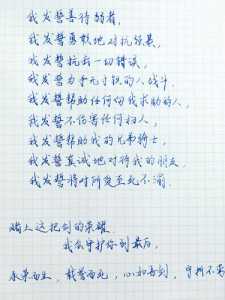 我发誓善待弱者,
我发誓勇敢地对抗强暴,
我发誓抗击一切错误,
我发誓为手无寸铁的人战斗.
我发誓帮助任何向我求助的人,
我发誓不伤害任何妇人,
我发誓帮助我的兄弟骑士,
我发誓真诚地对待我的朋友,
我发誓将对所爱至死不渝.
赌上这把剑的荣耀.
我会守护你到最后,
承荣而生,戴誉而死,心如吾剑,宁折不弯